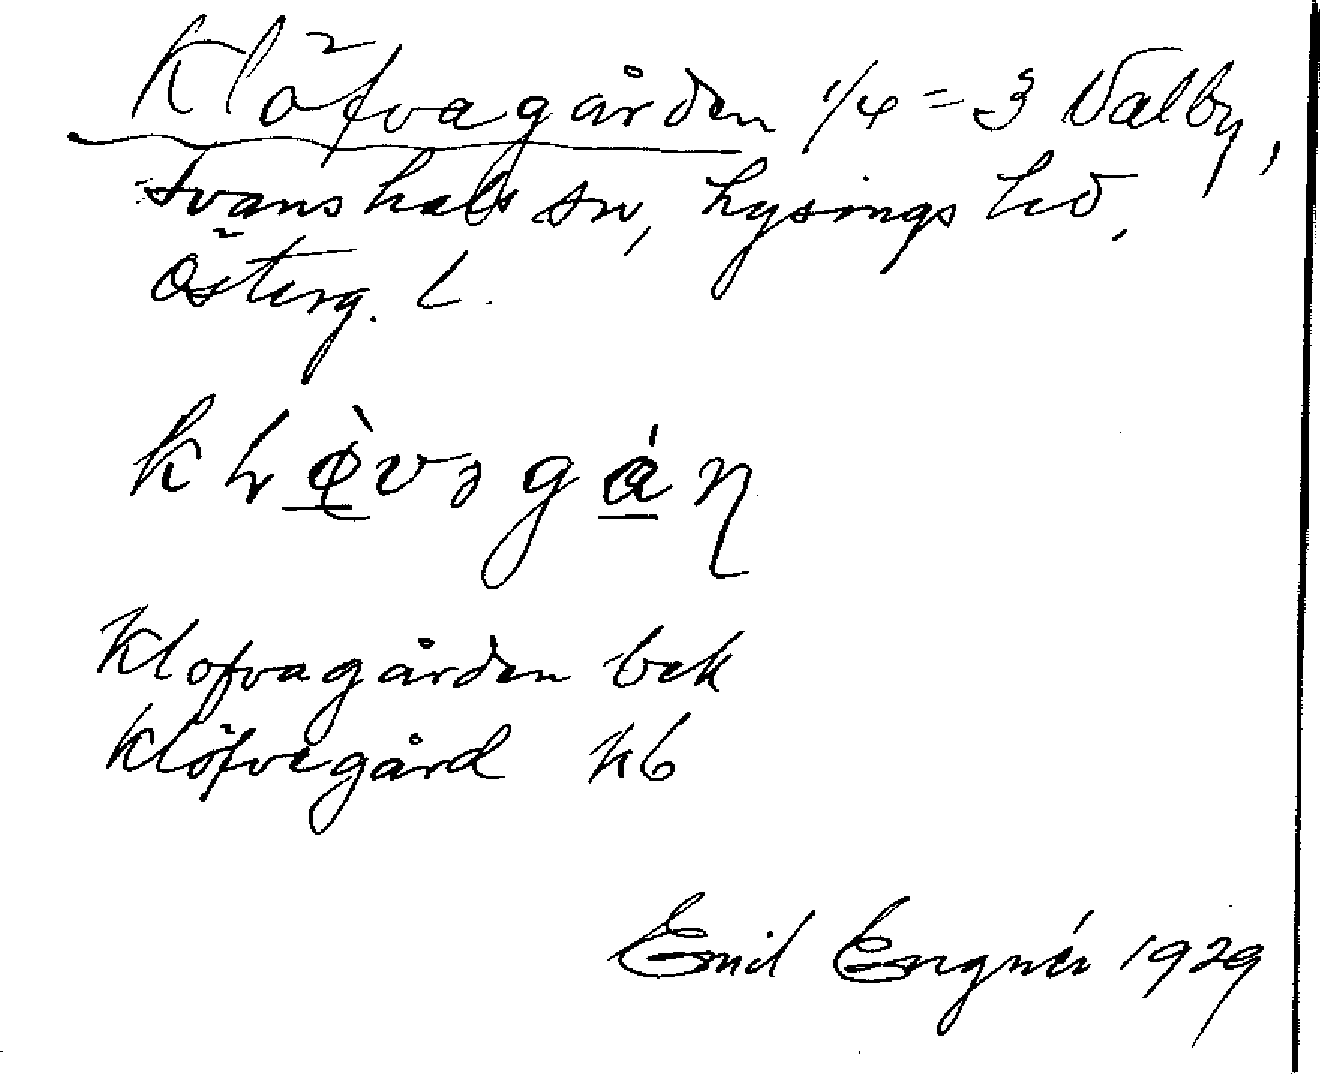 Klöfvagården 1/4 = 3 Valby,
Svanshals sn, Lysings hd,
Österg. L.
Klofvagården bek
Klöfvegård kb
Emil Engnér 1929